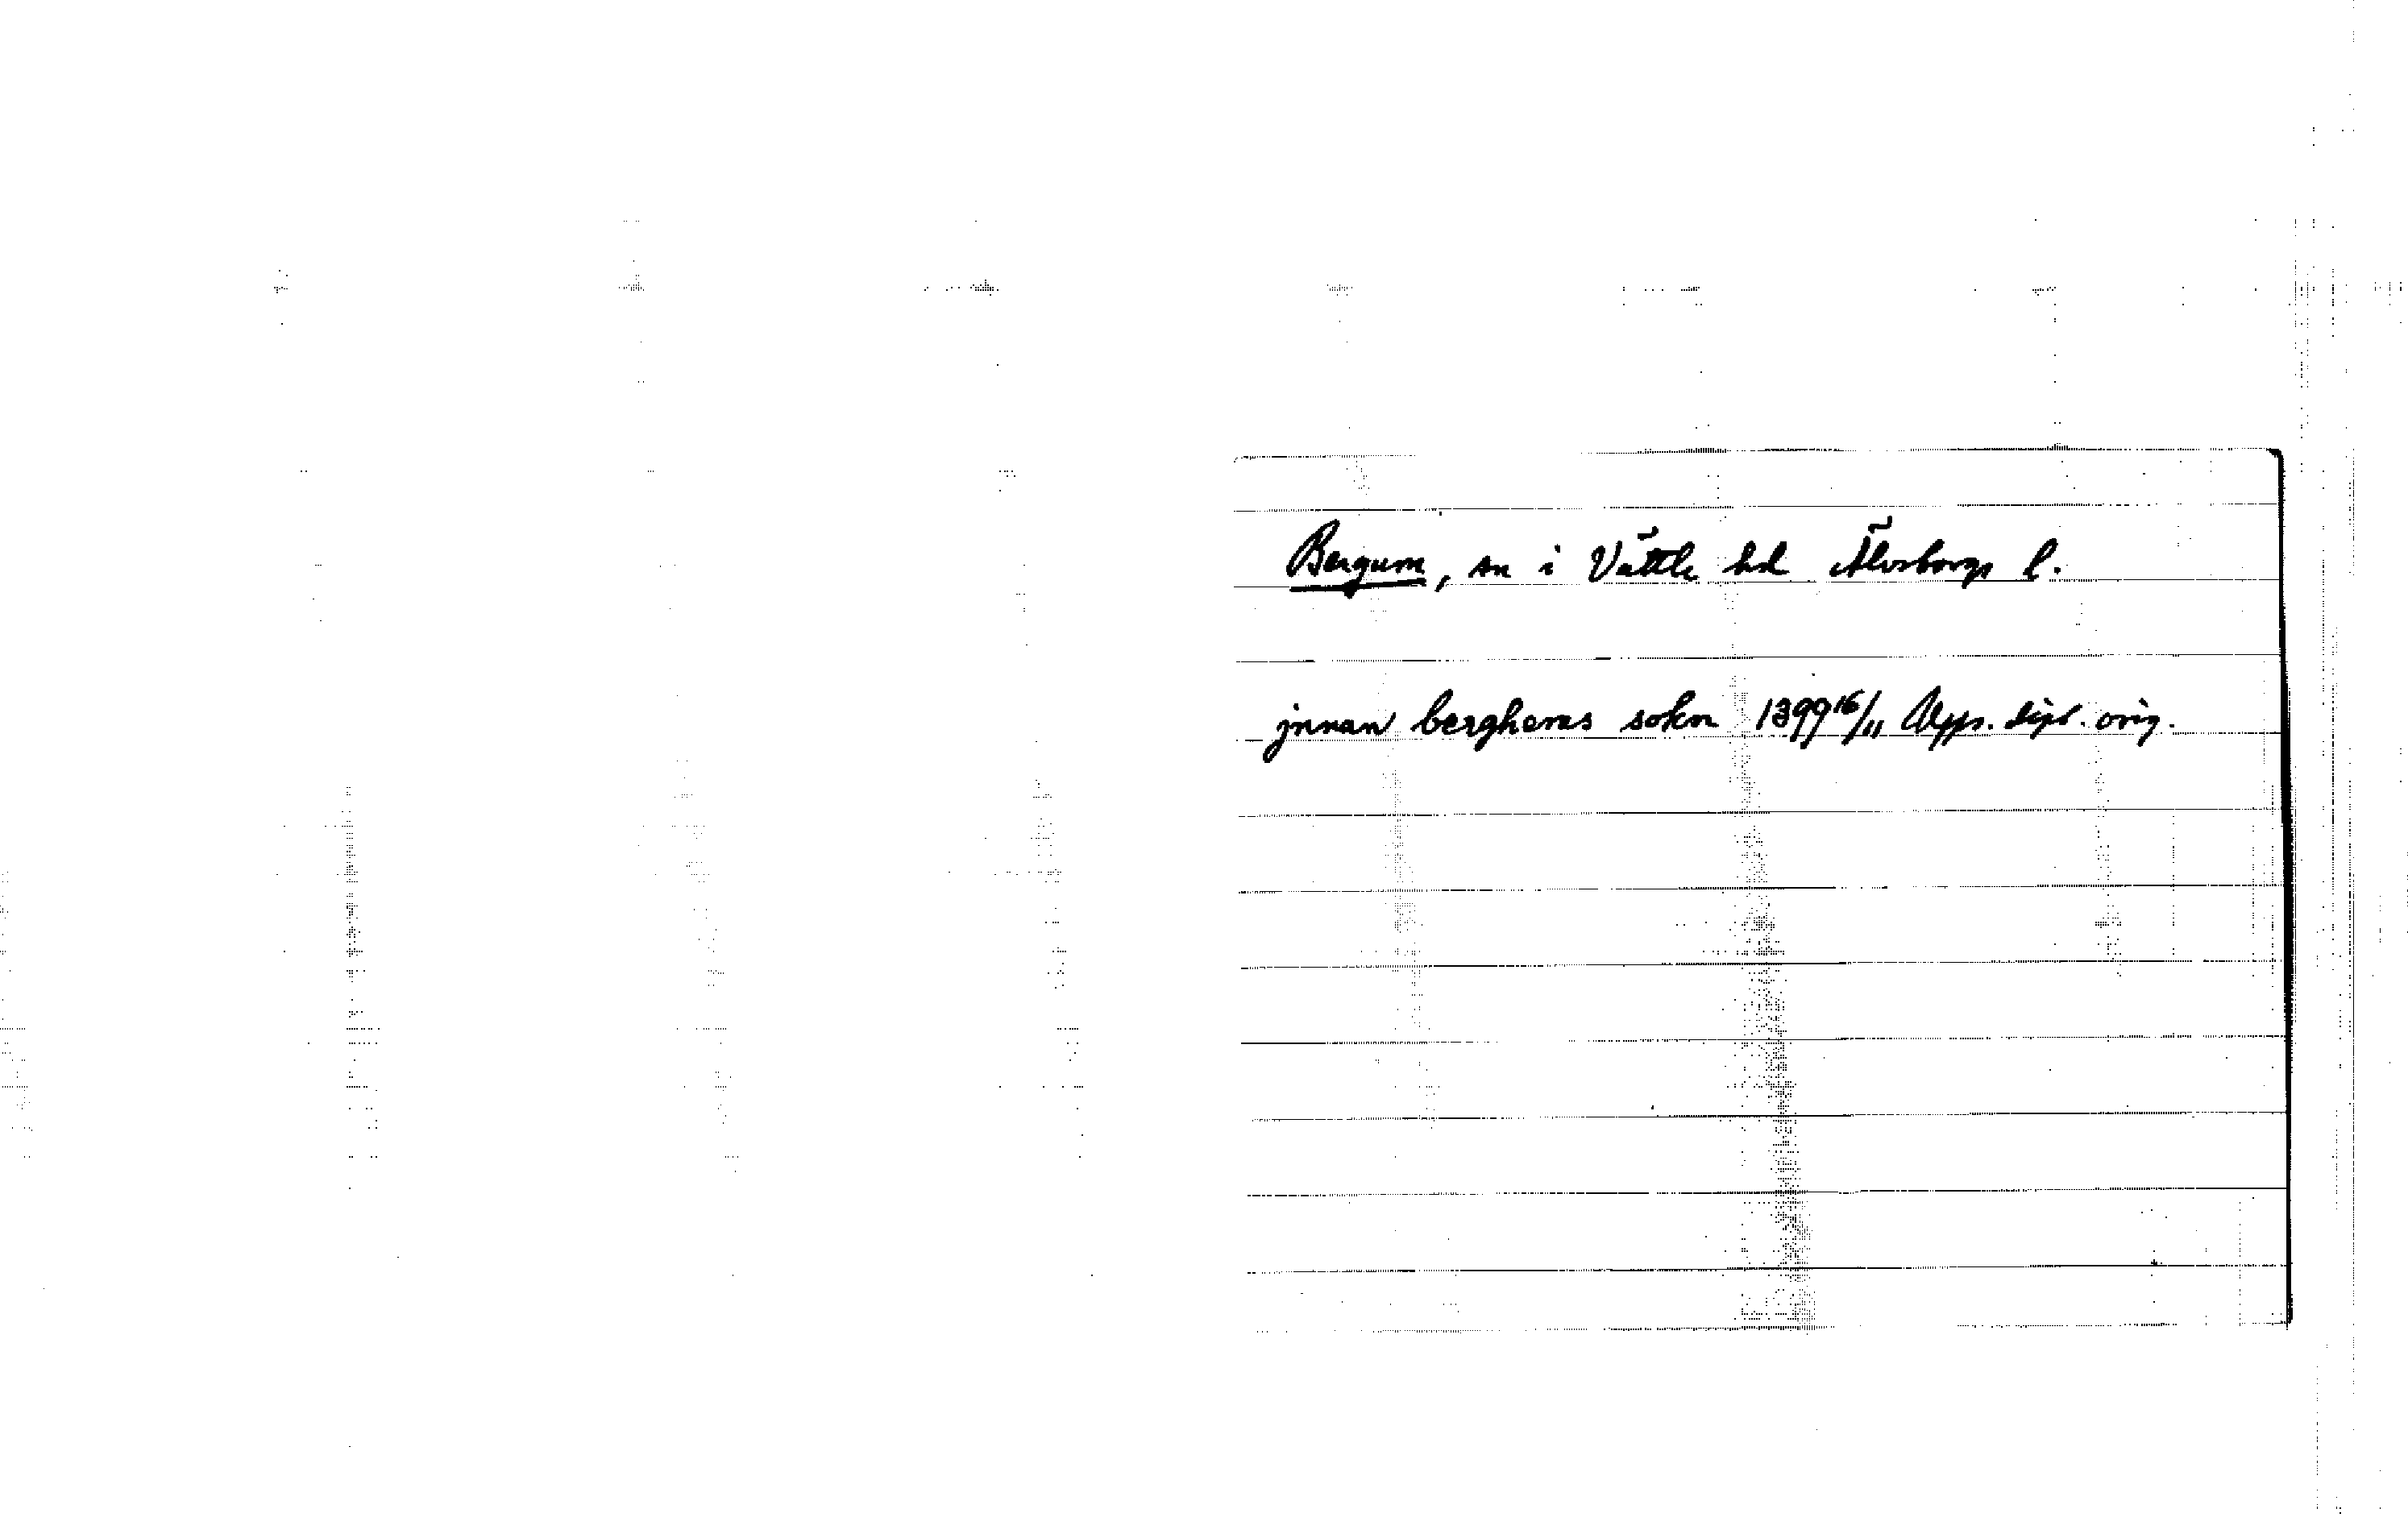 Bergum, sn i Vättle hd Älvsborgs l.
jnnan berghems sokn 1399 16/11 Upps. dipl. orig.